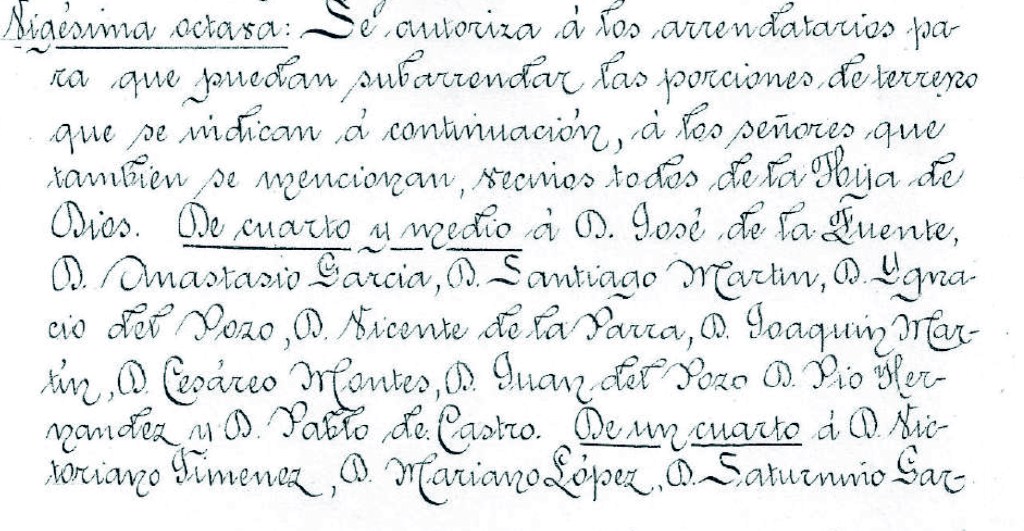 Vigésima octava: Se autoriza á los arrendatarios pa-
ra que puedan subarrendar las porciones de terreno
que se indican á continuación, á los señores que
tambien se mencionan, vecinos todos de la Hija de
Dios. De cuarto y medio á D. José de la Fuente,
D. Anastasio Garcia, D. Santiago Martin, D. Ygna-
cio del Pozo, D. Vicente de la Parra, D. Joaquin Mar-
tin, D. Cesáreo Montes, D. Juan del Pozo D. Pio Her-
nandez y D. Pablo de Castro. De un cuarto á D. Vic-
toriano Jimenez, D. Mariano López, D. Saturnino Gar-